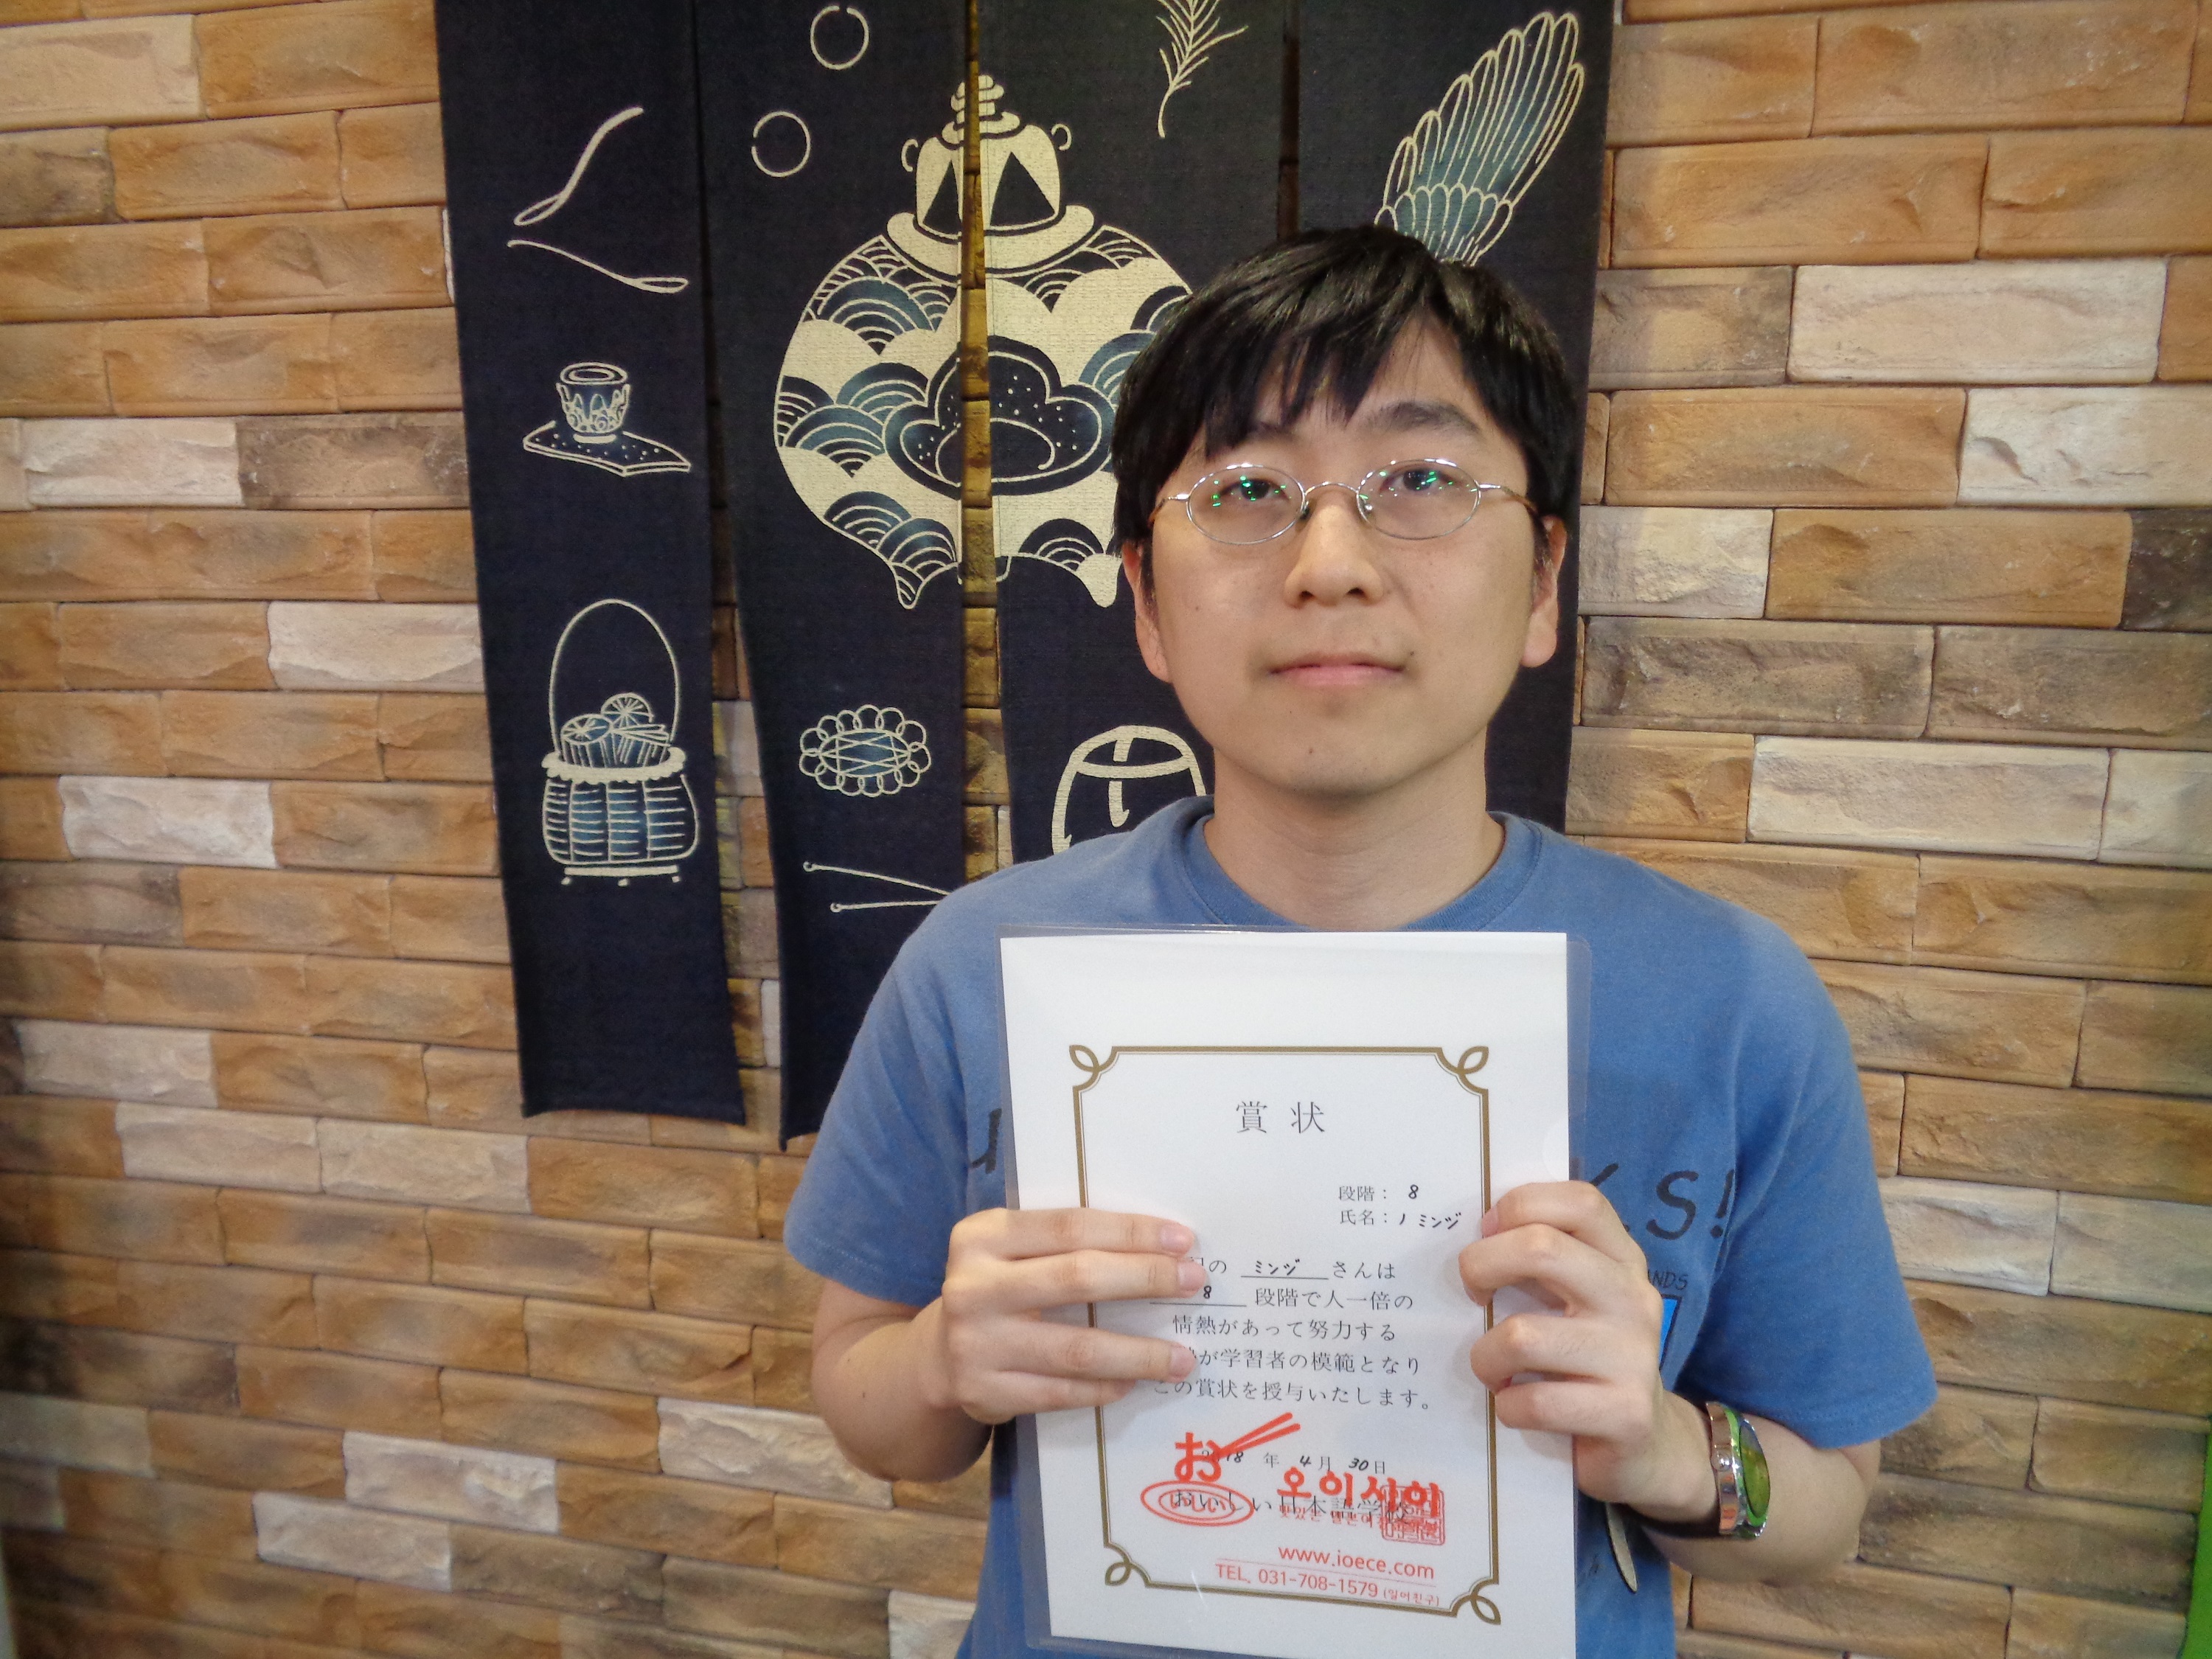 賞状
段階： 8
氏名： ノ ミンジ
の ミンジ さんは
8 段階で人一倍の
情熱があって努力する
が学習者の模範となり
この賞状を授与いたします。
お 18 年 4 月 30 日
오이시이
おいしい日本語学校
www.ioece.com
TEL. 031-708-1579 (일어친구)
KS!
ANDS